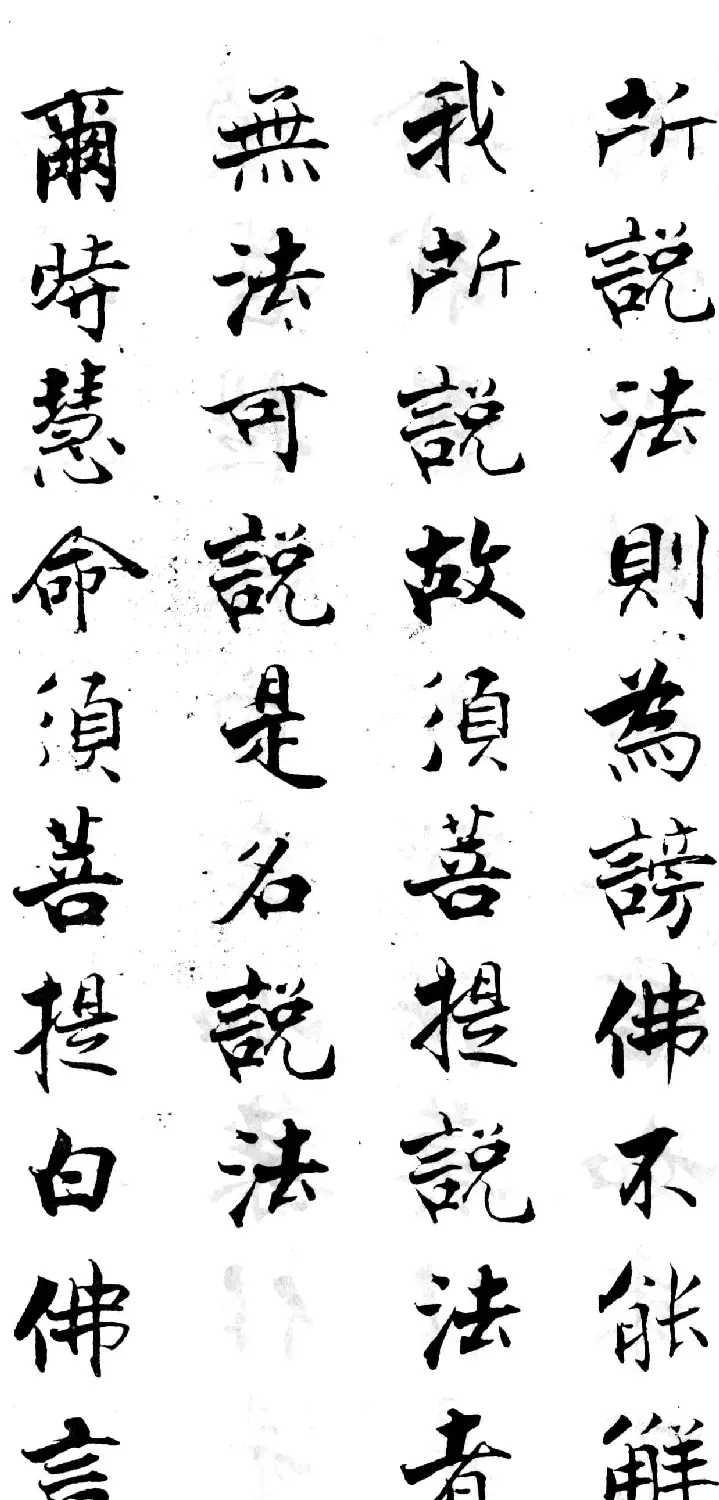 所說法則為謗佛不能解
我所說故須菩提說法者
無法可說是名說法
爾時慧命須菩提白佛言